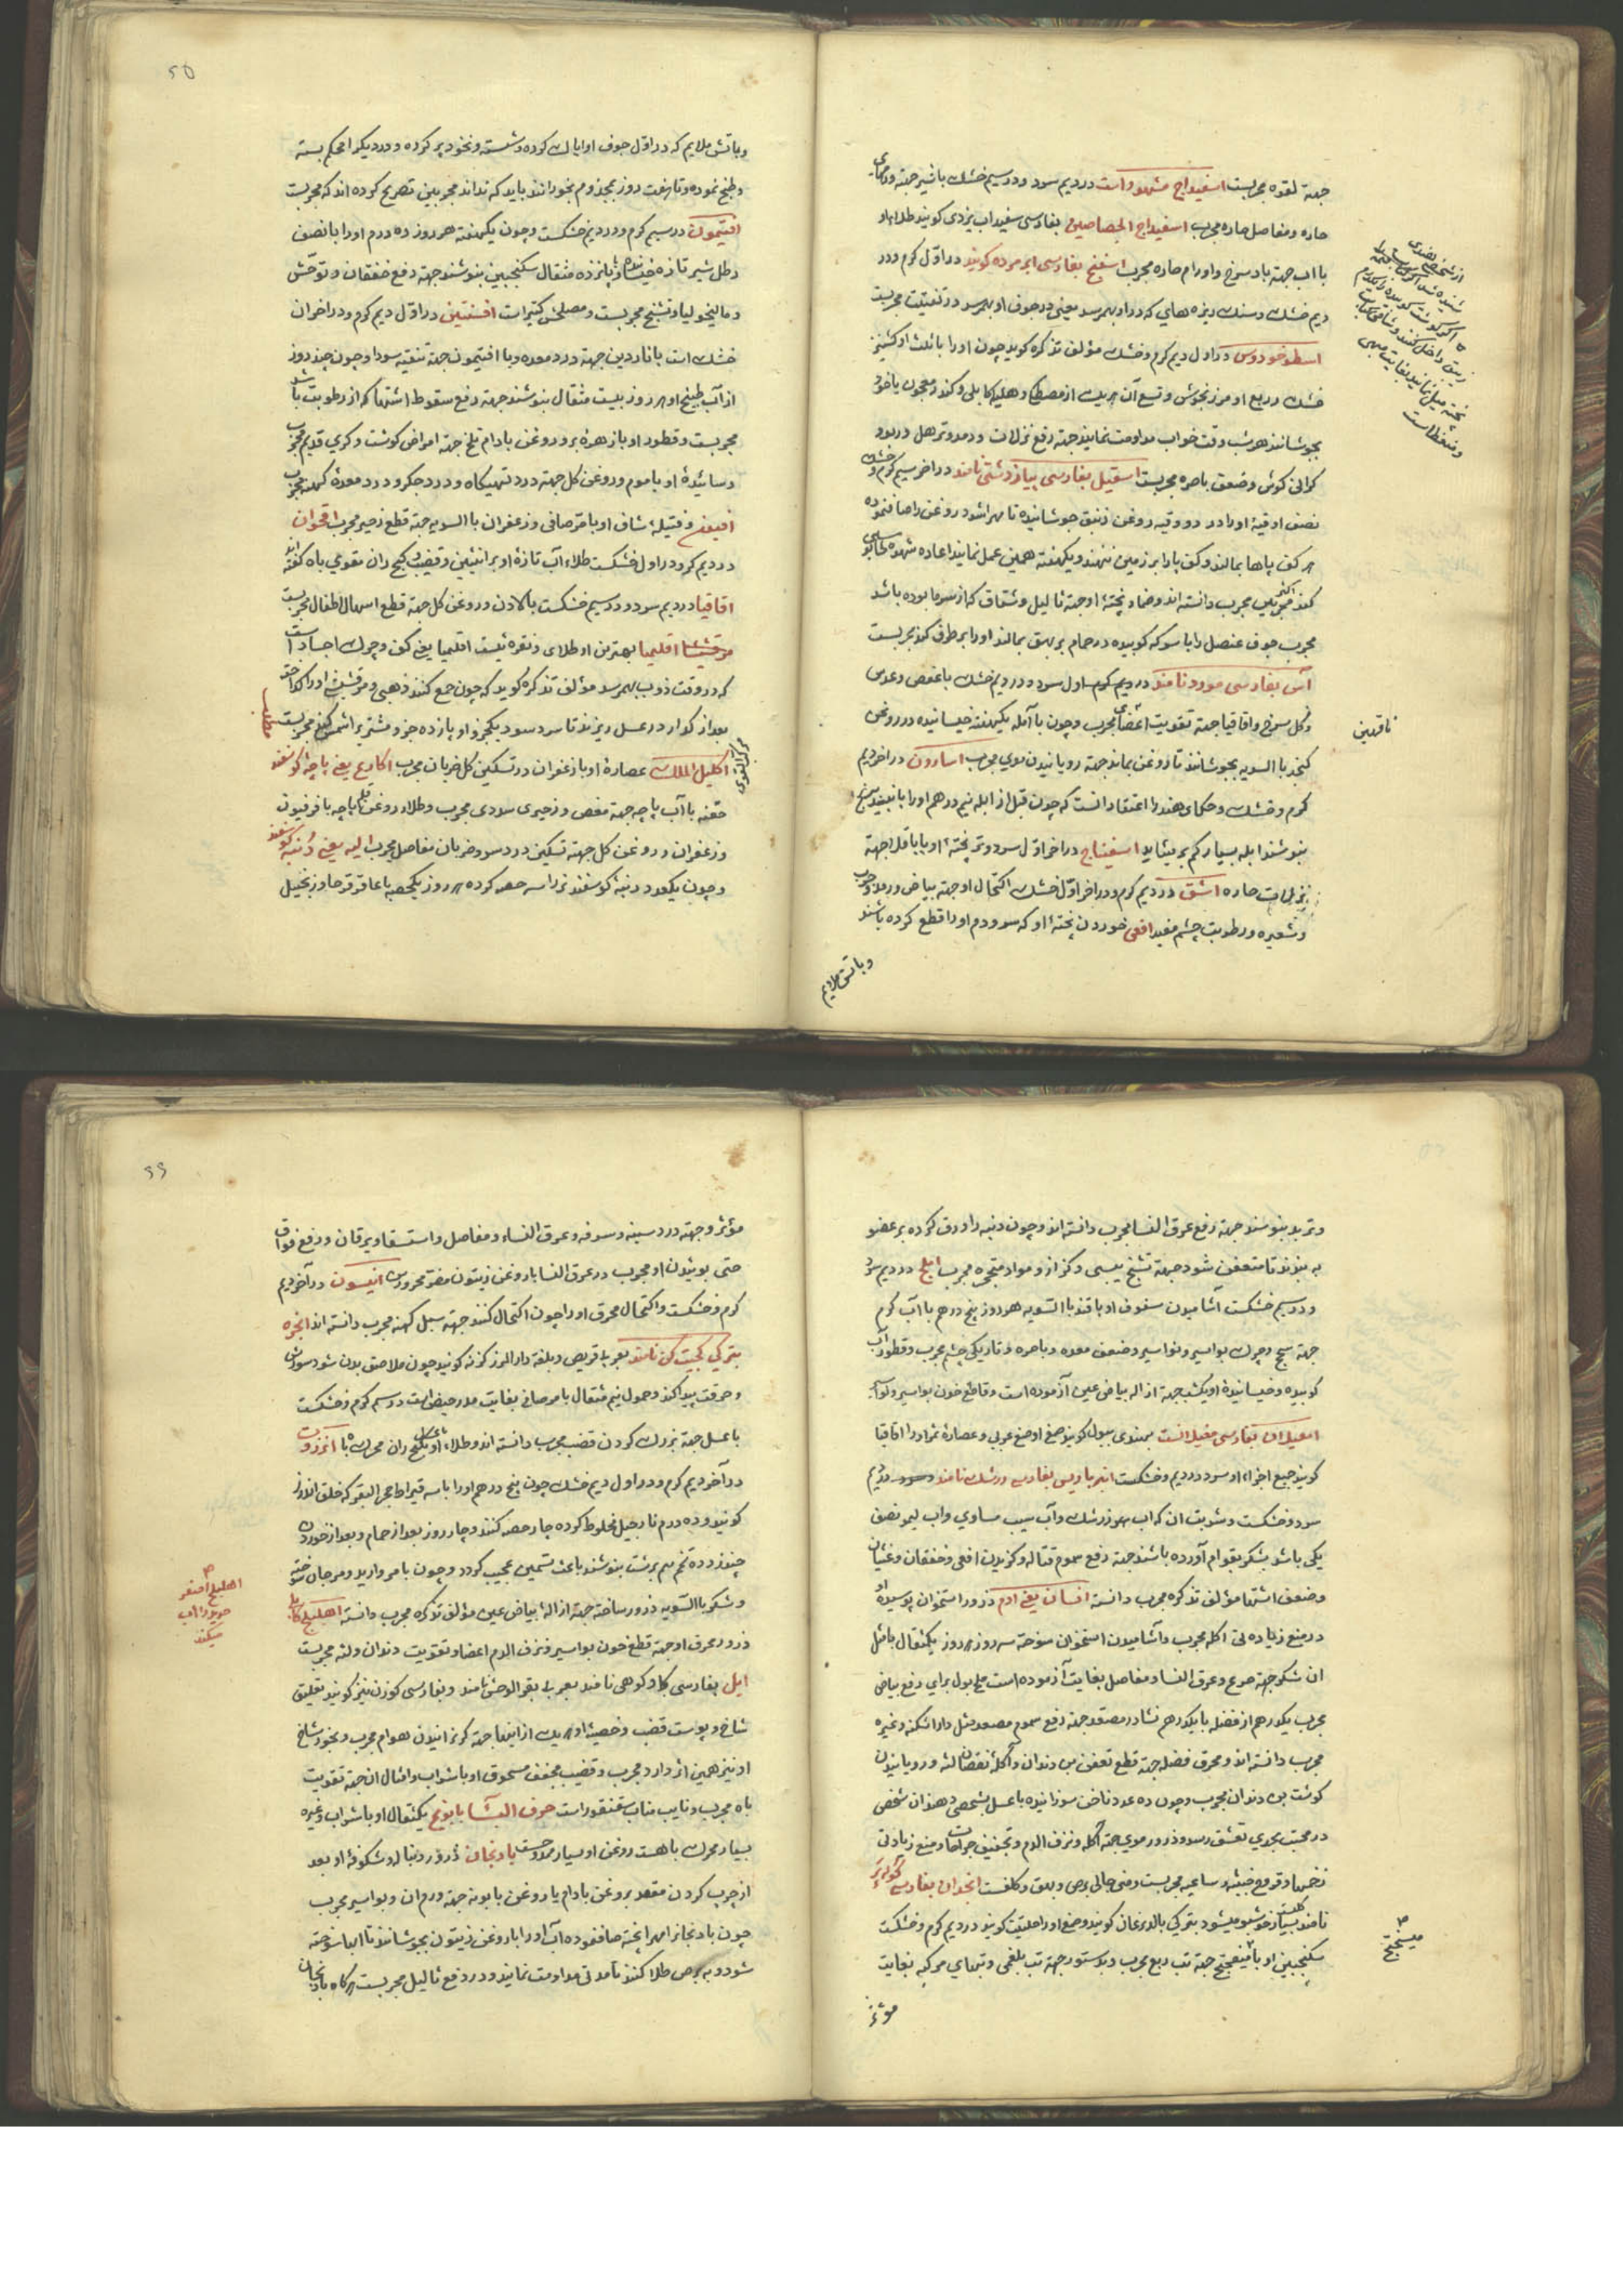 جهة لقوه مجربست اسفیداج مشهور است در دیم سرد و در سیم خشک باشیر جهة
حاره و مفاصل حاره مجرب اسفیداج الجصاصین بفارسی سفیداب یزدی کویند طلاء او
با آب جهة باد سرخ و اورام حاره مجرب اسفنج بفارسی ابر مرده کویند در اول کرم و در
دیم خشک و سنک ریزه های که در او بهرسد یعنی در جوف او بهرسد در تفتیت مجربست
اسطوخودوس در اول دیم کرم و خشک مؤلف تذکره کوید چون او را با ثلث او کشنیز
خشک و ربع او مرزنجوش و تسع آن هریک از مصطکی و هلیله کابلی و کندر معجون یا خود
بجوشانند هر شب وقت خواب مداومت نمایند جهة رفع نزلات و رمد و ترهل و ربو و
کرانی کوش و ضعف باصره مجربست اسقیل بفارسی پیاز دشتی نامند در آخر سیم کرم و خشک
نصف اوقیه او را در دو وقیه روغن زنبق جوشانیده تا مهرا شود روغن را صاف نموده
بر کف پاها بمالند و کف پا را بر زمین ننهند و یکهفته همین عمل نمایند اعاده شهوه
کند مجرب دانسته اند و ضماد پختهٔ او جهة ثالیل و شقاق که از سرما بوده باشد
مجرب جوف عنصل را با سرکه کوبیده در حمام بر بهق بمالند او را برطرف کند مجربست
آس بفارسی مورد نامند در دیم کرم اول سرد و در دیم خشک با عفص و عدس
و کل سرخ و اقاقیا جهة تقویت اعضای مجرب و چون با آمله یکهفته خیسانیده در روغن
کنجد با السویه بجوشانند تا روغن بماند جهة رویانیدن موی مجرب اسارون در آخر دیم
کرم و خشک و حکمای هند را اعتقاد آنست که چون قبل از ابله نیم درهم او را
بنوشند ابله بسیار کم بر میاید اسفیناج در آخر اول سرد و تر پختهٔ او با باقلا جهة
نزلات حاره اشق در دیم کرم و در آخر اول خشک اکتحال او جهة بیاض و رمد و جرب
و شعیره و رطوبت چشم مفید افعی خوردن پختهٔ او که سر و دم او را قطع کرده باشند
وباتش ملایم
ناقهین
وباتش ملایم که در اول جوف او را پاک کرده و شسته و نخود پر کرده و در دیک امحکم بسته
و طبخ نموده و تا هفت روز بمجذوم بخورانند باید که نداند مجربین تصریح کرده اند که مجربست
افتیمون در سیم کرم و در دیم خشکست و چون یکهفته هر روز ده درم او را با نصف
رطل شیر تازه خیسانده با پانزده مثقال سکنجبین بنوشند جهة دفع خفقان و توحش
و مالیخولیا و تشنج مجربست و مصلحش کتیراست افسنتین در اول دیم کرم و در آخر آن
خشک است با ناردین جهة درد معده و با افتیمون جهة تنقیه سودا و چون چند روز
از آب طبیخ او هر روز بیست مثقال بنوشند جهة رفع سقوط اشتها که از رطوبت باشد
مجربست و قطور او با زهرهٔ بز و روغن بادام تلخ جهة امراض کوشت و کری قدیم مجرب
و سائیدهٔ او با موم و روغن کل جهة درد تهیکاه و درد جکر و درد معدهٔ کهنه مجرب
افیون و فتیلهٔ شاف او با مر صافی و زعفران با السویه جهة قطع زحیر مجرب اقحوان
در دیم کرم و در اول خشکست طلاء آب تازهٔ او بر انثیین و قضیب و کنج ران مقوی باه کفته اند
اقاقیا در دیم سرد و در سیم خشکست با لادن و روغن کل جهة قطع اسهال اطفال مجربست
مرقشیثا اقلیمیا بهترین او طلای و نقره ئیست اقلیمیا یعنی کف و چرک اجساد است
که در وقت ذوب بهمرسد مؤلف تذکره کوید که چون جمع کنند ذهبی و مرقشیثا او را کداخته
بعد از کداز در عسل ریزند تا سرد شود
اکلیل الملک عصارهٔ او با زعفران در تسکین کل ضربان مجرب اکارع یعنی پاچهٔ کوسفند
حقنه با آب پاچه جهة مغص و زحیری سودی مجرب و طلاء روغن قلم پاچه با فرفیون
و زعفران و روغن کل جهة تسکین درد سر و ضربان مفاصل مجرب الیه یعنی دنبهٔ کوسفند
و چون یکعدد دنبهٔ کوسفند نر را سه حصه کرده هر روز یکحصه با عاقرقرحا و زنجبیل
وتربد بنوشند جهة رفع عرق النسا مجرب دانسته اند و چون دنبه را ورق کرده بر عضو
به بندند تا متعفن شود جهة تشنج یبسی و کزاز و مواد متحجره مجرب املج در دیم سرد
و در سیم خشکست آشامیدن سفوف او با قند با السویه هر روز پنج درهم با آب کرم
جهة سحج و چرک بواسیر و نواسیر و ضعف معده و باصره و تاریکی چشم مجرب و قطور آب
کوبیده و خیسانیدهٔ او یکشب جهة ازاله بیاض عین آزموده است و قاطع خون بواسیر
امغیلان بفارسی مغیلانست بهندی ببول کویند صمغ او صمغ عربی و عصارهٔ ثمر او را اقاقیا
کویند جمیع اجزاء او سرد در دیم و خشکست انبرباریس بفارسی زرشک نامند در دیم
سرد و خشکست و شربت آن که آب زرشک و آب سیب مساوی و آب لیمو نصف
یکی باشد بشکر بقوام آورده باشند جهة دفع سموم قتاله و کزیدن افعی و خفقان و غثیان
و ضعف اشتها مؤلف تذکره مجرب دانسته انسان یعنی آدم ذرور استخوان پوسیدهٔ او
در منع زیاده تی اکله مجرب و آشامیدن استخوان سوخته سه روز هر روز یکمثقال با مثل
آن شکر جهة صرع و عرق النسا و مفاصل بغایت آزموده است ملح بول برای رفع بیاض
مجرب یکدرهم از فضله با یکدرهم نشادر مصعد جهة دفع سموم مصعد مثل دارا شکنه و غیره
مجرب دانسته اند و محرق فضله جهة قطع تعفن بن دندان و اکله نقصان لثه و رویانیدن
کوشت بن دندان مجرب و چون ده عدد ناخن سوزانیده با عسل بشخصی دهند آن شخص
در محبت بحدی تعشق رسد و ذرور موی جهة اکله و نزف الدم و تجفیف جراحات و منع زیادتی
زخمها و قروح خبیثه و ساعیه مجربست و منی جالی برص و بهق و کلفست انجدان بفارسی
نامند بسیار خوشبو میشود بترکی بالدرغان کویند و صمغ او را حلتیت کویند در دیم کرم و خشکست
سکنجبین او با میفختج جهة تب ربع مجرب و بدستور جهة تب بلغمی و تبهای مرکبه بغایت
مؤثر
میفختج
مؤثر و جهة درد سینه و سرفه و عرق النساء و مفاصل و استسقا و یرقان و دفع فواق
حتی بوئیدن او مجرب و در عرق النسا با روغن زیتون انیسون در آخر دیم
کرم و خشکست و اکتحال محرق او را چون اکتحال کنند جهة سبل کهنه مجرب دانسته اند انجره
بترکی کجیت کن نامند بعربی قریص و بلغة دار المرز کزنه کویند چون ملاصق بدن شود سوزش
و حرقت پیدا کند و حمول نیم مثقال با مر صافی بغایت مدر حیض است در سیم کرم و خشکست
با عسل جهة بزرک کردن قضیب مجرب دانسته اند و طلاء او بکنج ران محرک باه انزروت
در آخر دیم کرم و در اول دیم خشک چون پنج درهم او را با سه قیراط حجر البقر که خلق الذرز
کویند و ده درم نارجیل مخلوط کرده چار حصه کنند و چار روز بعد از حمام و بعد از خوردن
چند زرده تخم نیم برشت بنوشند باعث تسمین عجیب کردد و چون با مروارید و مرجان سوخته
و شکر با السویه ذرور ساخته جهة ازالهٔ بیاض عین مؤلف تذکره مجرب دانسته اهلیلج کابلی
ذرور محرق او جهة قطع خون بواسیر و نزف الدم اعضا و تقویت دندان و لثه مجربست
ایل بفارسی کاو کوهی نامند بعربی بقر الوحش نامند و بفارسی کوزن نیز کویند تعلیق
شاخ و پوست قضب و خصیهٔ او هریک از اینها جهة کریزانیدن هوام مجرب و بخور شاخ
او نیز همین اثر دارد مجرب و قضیب مجفف مسحوق او با شراب و امثال آن جهة تقویت
باه مجرب و نایب مناب سقنقور است حرف البا بابونج یکمثقال او با شراب و غیره
بسیار محرک باهست روغن او بسیار بادنجان ذرور دنباله و شکوفهٔ او بعد
از چرب کردن مقعد بروغن بادام یا روغن بابونه جهة ورم آن و بواسیر مجرب
چون بادنجانرا مهرا پخته صاف نموده آب او را با روغن زیتون بجوشانند تا آبها سوخته
شود و به برص طلا کنند تا مدتی مداومت نمایند و در دفع ثالیل مجربست هرکاه بادنجان
اهلیلج اصفر